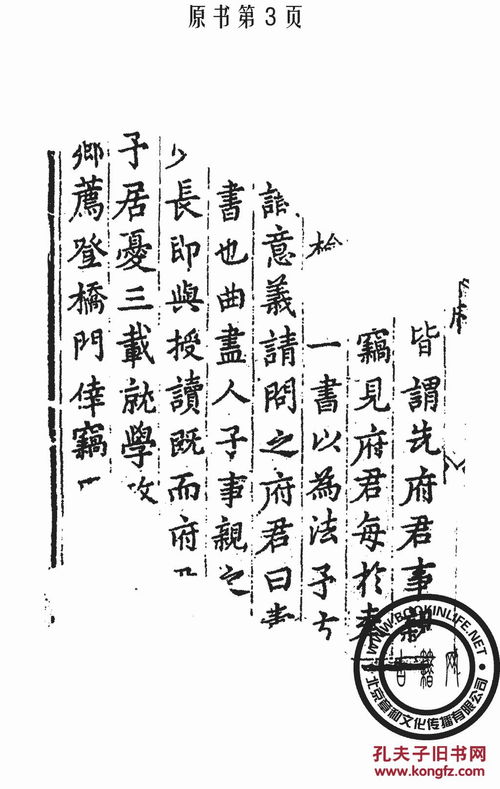 原书第3页
皆謂先府君事
竊見府君每於
一書以為法予
意義請問之府君曰
書也曲盡人子事親之
少長即與授讀既而府
予居憂三載就學
鄉薦登橋門倖竊
WWW.BOOKINLIFE.NET
古籍网
北京意和文化传播有限公司
孔夫子旧书网
www.kongfz.com